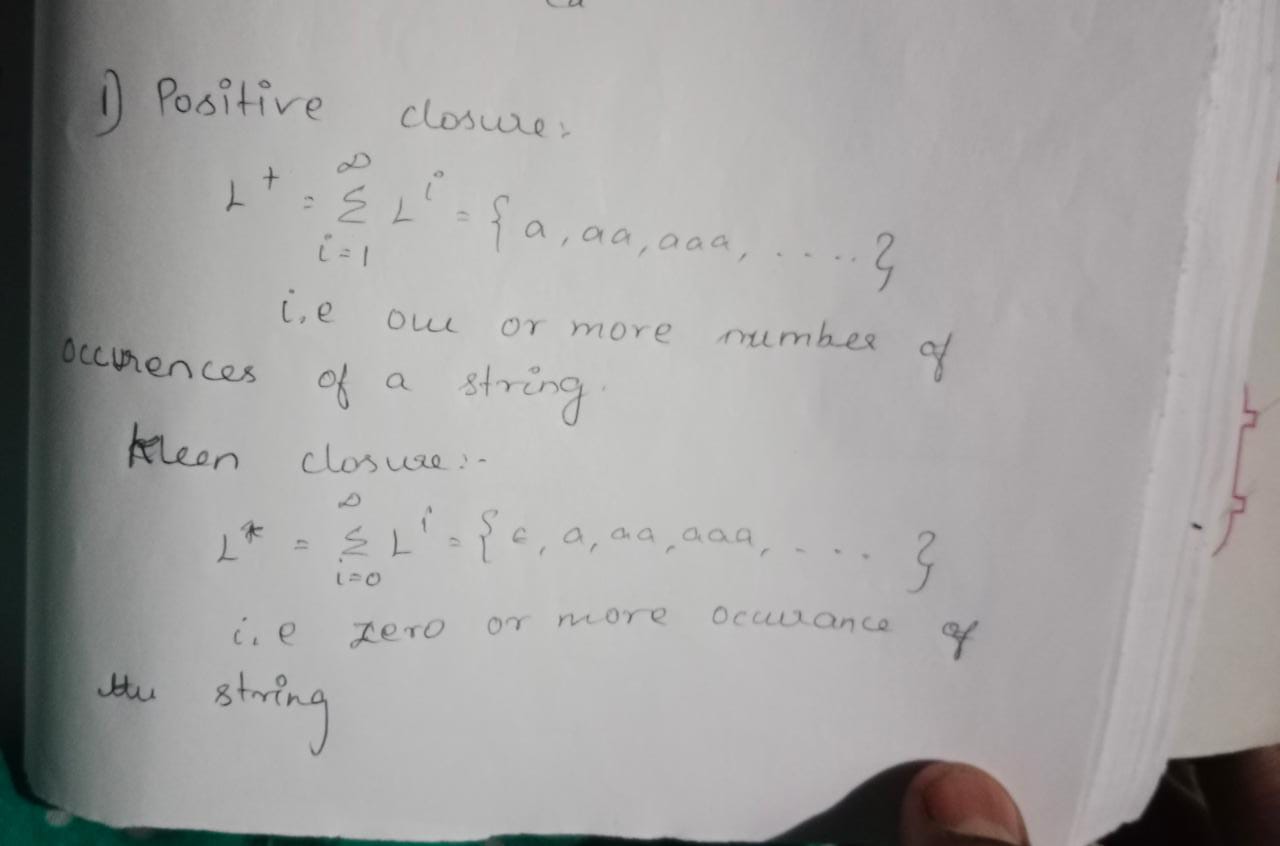 i) Positive closure:
L⁺ = ∞ Σ i=1 Lⁱ = { a, aa, aaa, ..... }
i.e one or more number of
occurences of a string.
Kleen closure:-
L* = ∞ Σ i=0 Lⁱ = { ϵ, a, aa, aaa, .... }
i.e zero or more occurance of
the string